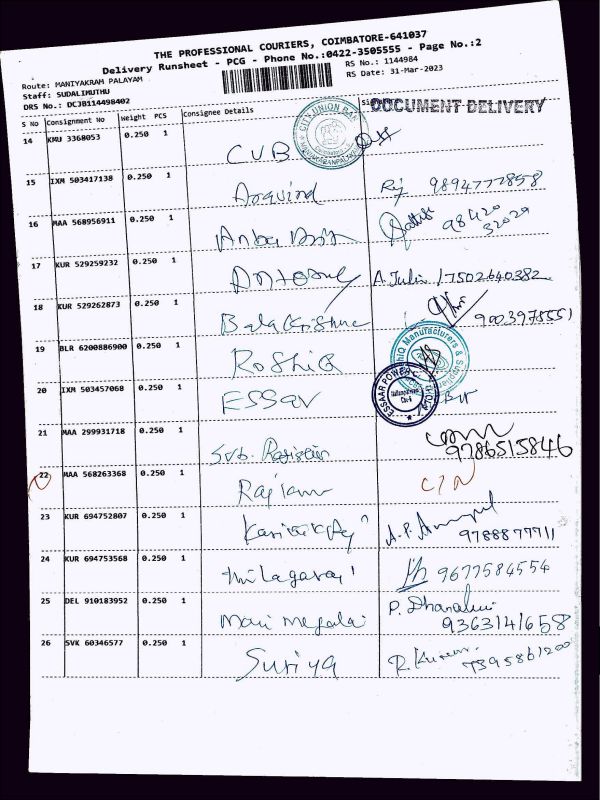 THE PROFESSIONAL COURIERS, COIMBATORE-641037
Delivery Runsheet - PCG - Phone No.:0422-3505555 - Page No.:2
Route: MANIYAKRAM PALAYAM
Staff: SUDALIMUTHU
DRS No.: DCJB114498402
RS No.: 1144984
RS Date: 31-Mar-2023
S No Consignment No Weight PCS Consignee Details
DOCUMENT DELIVERY
CITY UNION BAN
14 KMU 3368053 0.250 1 CUB
15 IXM 503417138 0.250 1 Aravind 9894777858
16 MAA 568956911 0.250 1 98420
32029
17 KUR 529259232 0.250 1 A. Julie / 7502640382
18 KUR 529262873 0.250 1 Balakrishne 9003978551
19 BLR 6200886900 0.250 1 RoShiQ
hiQ Manufacturers &
20 IXM 503457068 0.250 1 ESSar
ESSAAR POWER
21 MAA 299931718 0.250 1 Sub. 9786515846
22 MAA 568263368 0.250 1
23 KUR 694752807 0.250 1 9788877711
24 KUR 694753568 0.250 1 9677584554
25 DEL 910183952 0.250 1 Mari megalai P. 9363141658
26 SVK 60346577 0.250 1 Suriya R. 7395861200